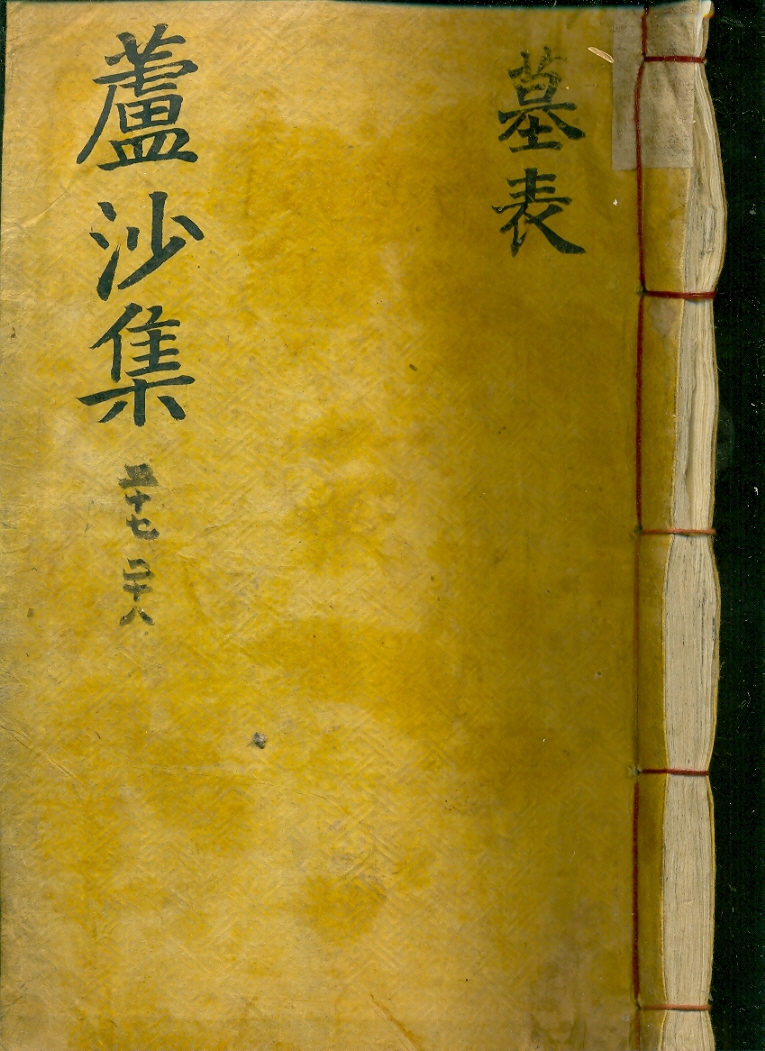 墓表
蘆沙集
二十七 二十八